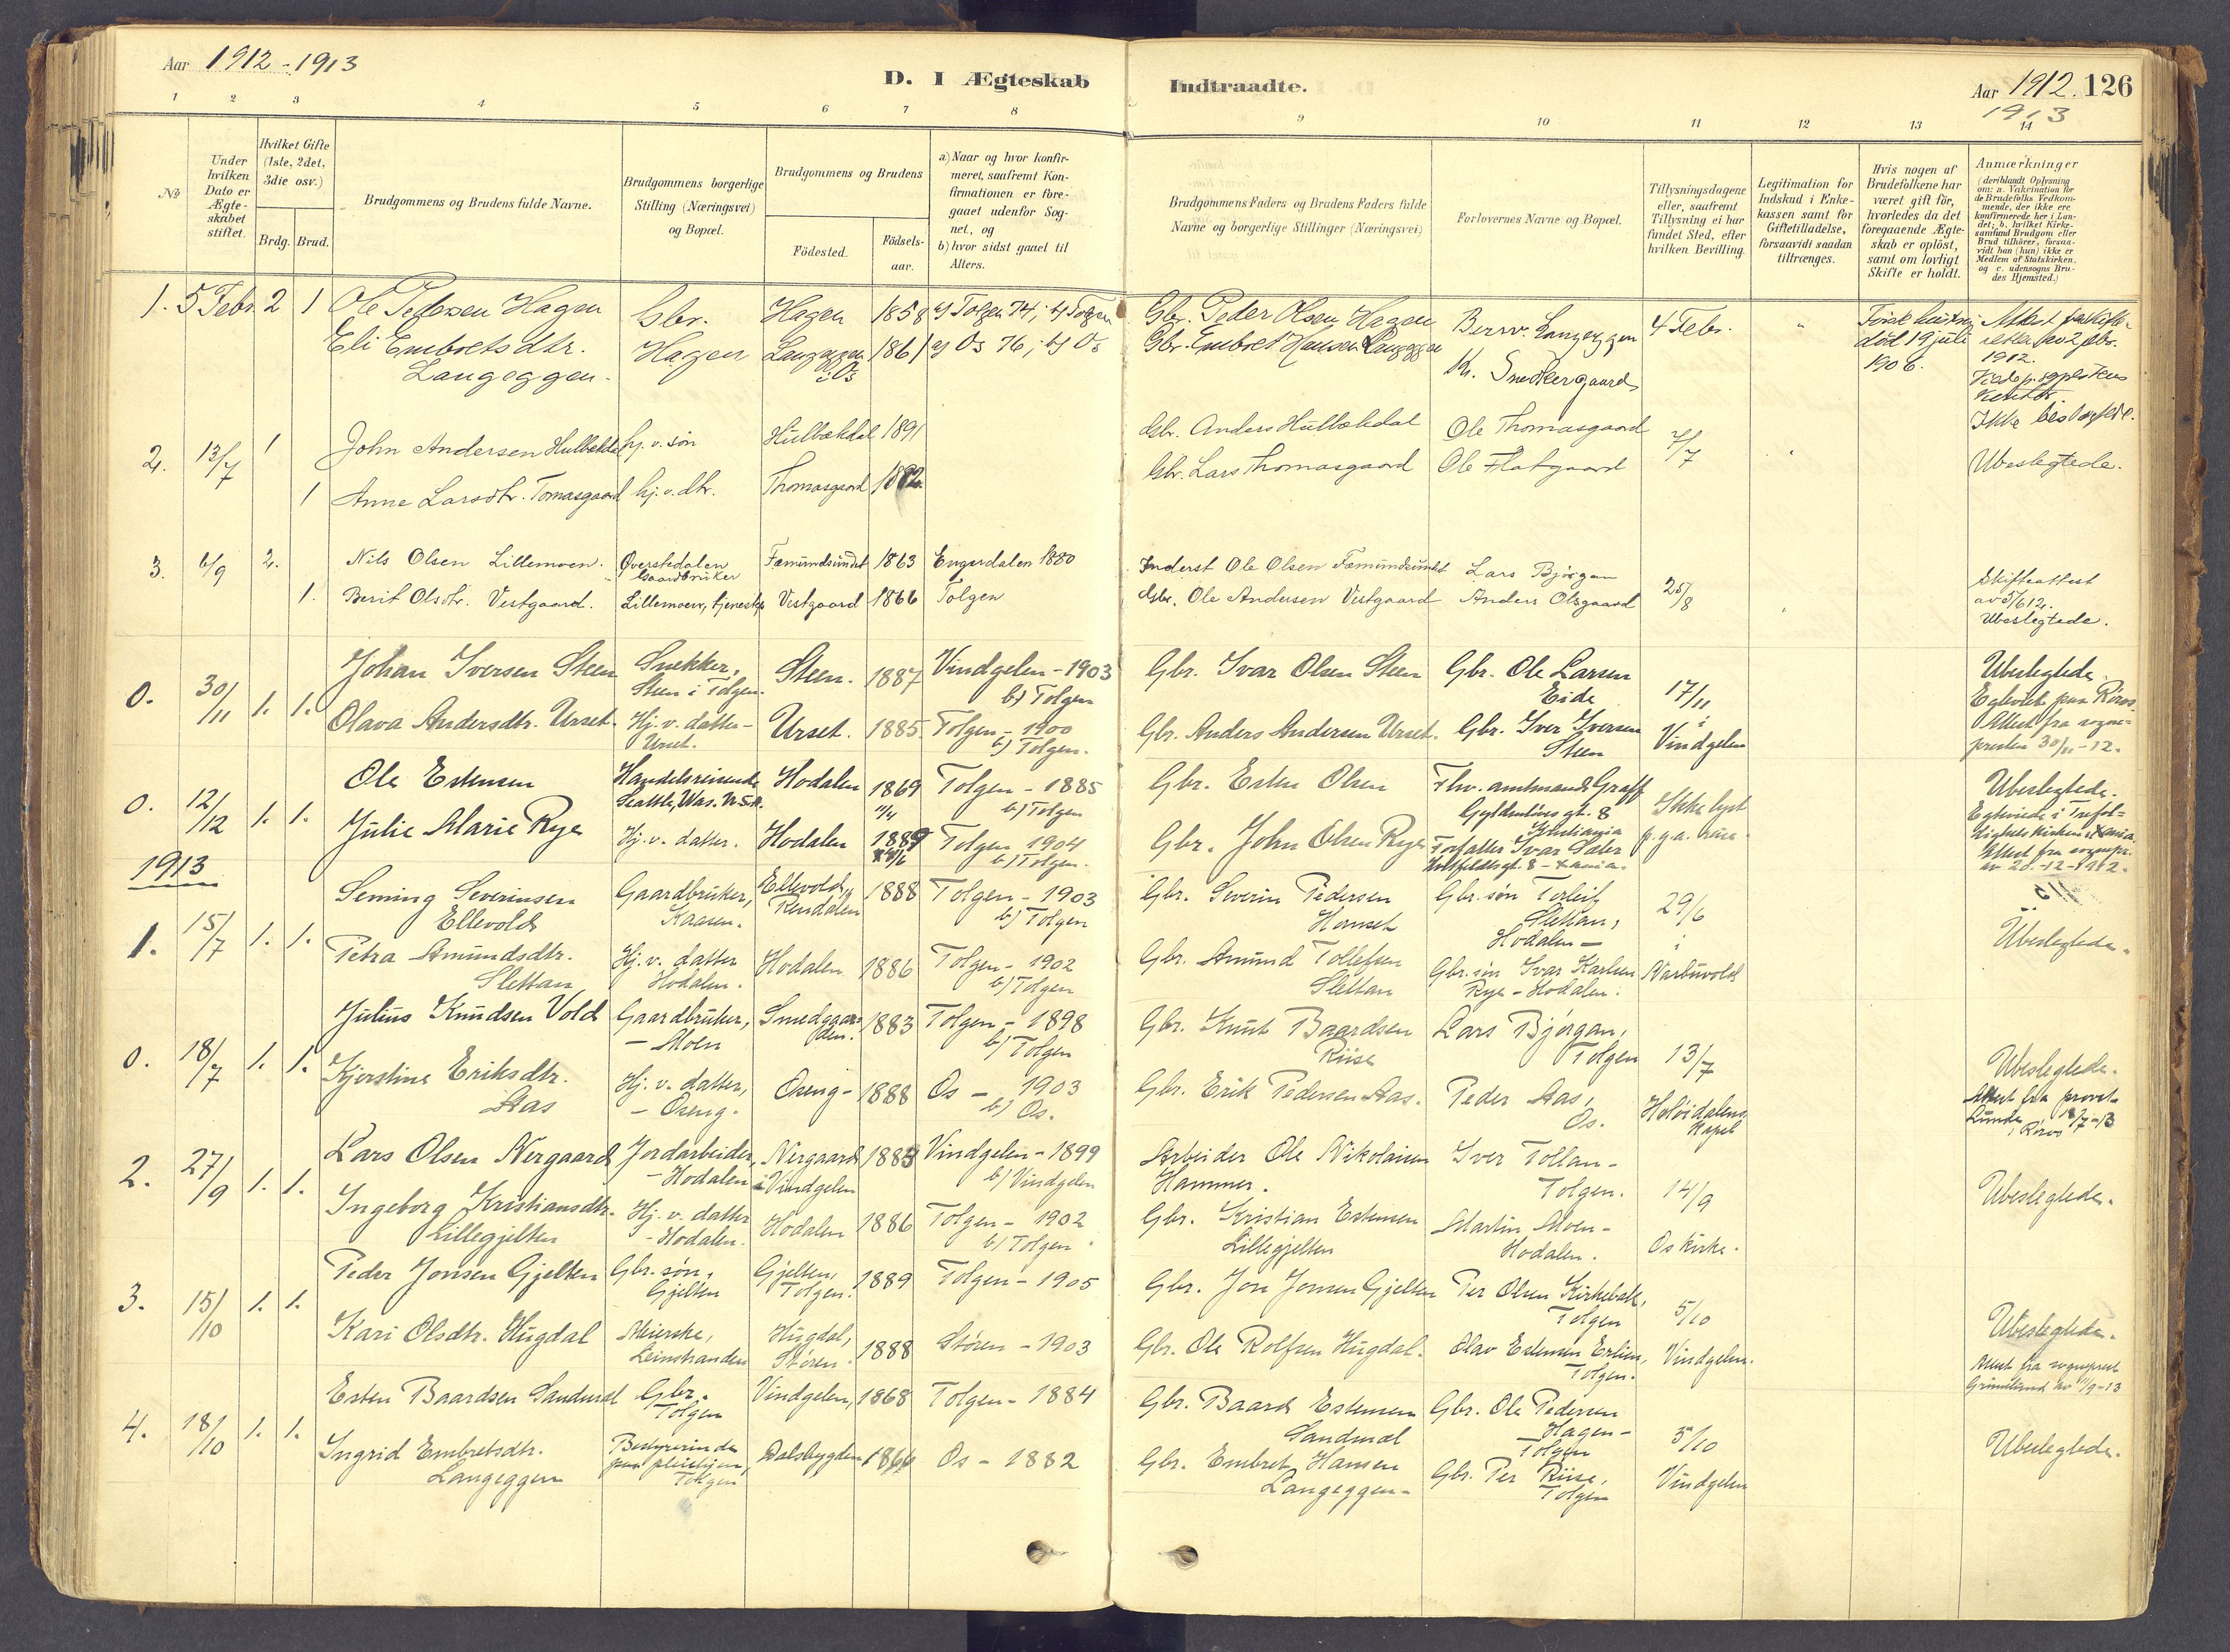 Aar 1912-1913
D. I Ægteskab
Indtraadte.
Aar 1912. 126
1913
1 2 3 4 5 6 7 8
9 10 11 12 13 14
No
Under hvilken Dato er Ægteskabet stiftet.
Hvilket Gifte (1ste, 2det, 3die osv.)
Brdg. Brud.
Brudgommens og Brudens fulde Navne.
Brudgommens borgerlige Stilling (Næringsvei) og Bopæl.
Brudgommens og Brudens
Födested.
Födsels-aar.
a) Naar og hvor konfir-
meret, saafremt Kon-
firmationen er fore-
gaaet udenfor Sog-
net, og
b) hvor sidst gaaet til
Alters.
Brudgommens Faders og Brudens Faders fulde
Navne og borgerlige Stillinger (Næringsvei)
Forlovernes Navne og Bopæl.
Tillysningsdagene
eller, saafremt
Tillysning ei har
fundet Sted, efter
hvilken Bevilling.
Legitimation for
Indskud i Enke-
kassen samt for
Giftetilladelse,
forsaavidt saadan
tiltrænges.
Hvis nogen af
Brudefolkene har
været gift för,
hvorledes da det
foregaaende Ægte-
skab er oplöst,
samt om lovligt
Skifte er holdt.
Anmærkninger
(deriblandt Oplysning
om: a. Vakcination for
de Brudefolks Vedkom-
mende, der ikke ere
konfirmerede her i Lan-
det; b. hvilket Kirke-
samfund Brudgom eller
Brud tilhörer, forsaa-
vidt han (hun) ikke er
Medlem af Statskirken.
og c. udensogns Bru-
des Hjemsted.)
1. 5 Febr. 2 1 Ole Pedersen Hagen Gbr. Hagen 1858 a) Tolgen 74; b) Tolgen Gbr. Peder Olsen Hagen Berw. Langeggen 4 Febr.
Eli Embretsdtr. Langeggen Hagen Langeggen i Os 1861 a) Os 76; b) Os Gbr. Embret Hansen Langeggen Kr. Snedkergaard
død 19 juli 1906.
1912.
Ikke beslægtede.
2. 13/7 1 John Andersen Hulbækdal hj. v. søn Hulbækdal 1891 Gbr. Anders Hulbækdal Ole Thomasgaard 7/7
1 Anne Larsdtr. Tomasgaard hj. v. dtr. Thomasgaard 1892 Gbr. Lars Thomasgaard Ole Flatgaard Ubeslegtede.
3. 6/9 2. Nils Olsen Lillemoen. Øverstedalen Gaardbruker Fæmundsundet 1863 Engerdalen 1880 Inderst Ole Olsen Fæmundsundet Lars Bjørgan 25/8
1. Berit Olsdtr. Vestgaard. Lillemoen, Vestgaard 1866 Tolgen Gbr. Ole Andersen Vestgaard Anders Olsgaard
Skifteattest
av 5/6 12.
Ubeslegtede.
0. 30/11 1. 1. Johan Iversen Steen Snekker, Steen i Tolgen. Steen. 1887 Vindgelen - 1903 b) Tolgen Gbr. Ivar Olsen Steen Gbr. Ole Larsen Eide 17/11 i Vindgelen
Olava Andersdtr. Urset. Hj. v. datter - Urset. Urset. 1885. Tolgen - 1900 b) Tolgen. Gbr. Anders Andersen Urset. Gbr. Iver Iversen Steen
Ubeslegtede.
Egteviet paa Røros.
Attest fra sogne-
presten 30/11-12.
0. 12/12 1. 1. Ole Estensen Handelsreisende Seattle, Was. U.S.A. Hodalen 1869 11/4 Tolgen - 1885 b) Tolgen Gbr. Esten Olsen Fhv. amtmand Graff Gyldenløves gt. 8 Kristiania Ikke lyst p. g. a. reise
Julie Marie Rye Hj. v. datter. Hodalen 1889 Tolgen 1904 b) Tolgen. Gbr. John Olsen Rye Forfatter Ivar Sæter
Ubeslegtede.
Egteviede i Trefol-
dighetskirken, Xania.
Attest fra sognepr.
av 20-12-1912.
1913
1. 15/7 1. 1. Seming Severinsen Ellevold Gaardbruker, Kaasen. Ellevold, Rendalen 1888 Tolgen - 1903 b) Tolgen Gbr. Severin Pedersen Hanset Gbr. søn Torleif Slettan, Hodalen - 29/6 i Narbuvold
Petra Amundsdtr. Slettan Hj. v. datter Hodalen. Hodalen 1886 Tolgen - 1902 b) Tolgen Gbr. Amund Tollefsen Slettan Gbr. søn Ivar Karlsen Rye - Hodalen.
Ubeslegtede.
0. 18/7 1. 1. Julius Knudsen Vold Gaardbruker, - Moen Smedgaarden. 1883 Tolgen - 1898 b) Tolgen Gbr. Knut Baardsen Riise Lars Bjørgan, Tolgen 13/7
Kjerstine Eriksdtr. Aas Hj. v. datter, - Oseng. Oseng - 1888 Os - 1903 b) Os. Gbr. Erik Pedersen Aas. Peder Aas, Os. Holøidalens Kapel
Ubeslegtede.
Attest fra provst
Lunde, Røros 18/7-13
2. 27/9 1. 1. Lars Olsen Nergaard Jordarbeider, - Hodalen Nergaard i Vindgelen 1883 Vindgelen - 1899 b) Vindgelen Arbeider Ole Nikolaisen Hammer. Iver Tollan - Tolgen. 14/9
Ingeborg Kristiansdtr. Lillegjelten Hj. v. datter - Hodalen. Hodalen 1886 Tolgen - 1902 b) Tolgen Gbr. Kristian Estensen Lillegjelten Martin Moen - Hodalen. Os kirke.
Ubeslegtede.
3. 15/10 1. 1. Peder Jonsen Gjelten Gbr. søn, Gjelten Gjelten, Tolgen. 1889 Tolgen - 1905 Gbr. Jon Jonsen Gjelten Per Olsen Kirkebak, Tolgen 5/10
Kari Olsdtr. Hugdal Meierske, Leinstranden Hugdal, Støren. 1888 Støren - 1903 Gbr. Ole Rolfsen Hugdal. Olav Estensen Erlien, Tolgen. Vindgelen.
Ubeslegtede.
Attest fra sogneprest
av 11/9-13
4. 18/10 1. 1. Esten Baardsen Sandmæl Gbr. Tolgen Vindgelen, 1868 Tolgen - 1884 Gbr. Baard Estensen Sandmæl Gbr. Ole Pedersen Hagen - Tolgen 5/10
Ingrid Embretsdtr. Langeggen Bestyrerinde paa pleiehjem, Tolgen Dalsbygden 1866 Os - 1882 Gbr. Embret Hansen Langeggen - Gbr. Per Riise, Tolgen Vindgelen
Ubeslegtede.